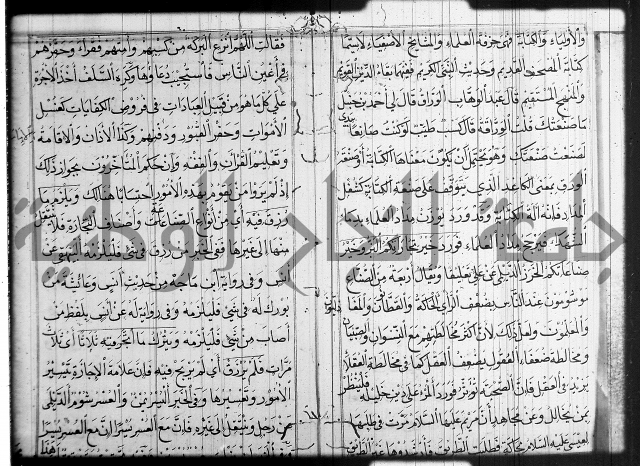 والأولياء والكتابة فهي حرفة العلماء والمشايخ الأصفياء لاسيما
كتابة المصحف القديم وحديث النبي الكريم ففيها بقاء الدين القويم
والمنهج المستقيم قال عبد الوهاب الوراق قال لي أحمد بن حنبل
ما صنعتك قلت الوراقة قال كسب طيب لو كنت صانعا بيدي
لصنعت صنعتك وهو يحتمل أن يكون معناها الكتابة أو صنعة
الورق بمعنى الكاغد الذي يتوقف عليه صنعة الكتابة كشغل
المداد فإنه آلة الكتابة وقد ورد توزن مداد العلماء بدماء
الشهداء فيرجح مداد العلماء فورد خير تجارتكم البز وخير
صناعاتكم الخرز الديلمي عن علي تعليقا ويقال أربعة من الصناع
موسومون عند الناس بضعف الرأي الحاكة والقطان والمغازلي
والمعلمون ولعل ذلك لأن أكثر مخالطتهم مع النسوان والصبيان
ومخالطة ضعفاء العقول يضعف العقل كما في مخالطة العقلاء
يزيد في العقل فإن الصحبة تؤثر فورد المرء على دين خليله فلينظر
من يخالل وعن مجاهد أن مريم عليها السلام مرت في طلبها
لعيسى عليه السلام بحاكة فطلبت الطريق فأرشدوها غير الطريق
فقالت اللهم انزع البركة من كسبهم وأمتهم فقراء وحقرهم
في أعين الناس فاستجيب دعاؤها وكره السلف أخذ الأجرة
على كل ما هو من قبيل العبادات في فروض الكفايات كغسل
الأموات وحفر القبور ودفنهم وكذا الأذان والإقامة
وتعليم القرآن والفقه وإن حكم المتأخرون بجواز ذلك
إذ لم يروا من يقوم بهذه الأمور احتسابا هنالك ويلزم ما
رزق فيه أي من أنواع الصناعات وأصناف التجارة فلا ينتقل
منها إلى غيرها ففي الخبر من رزق في شيء فليلزمه البيهقي عن
أنس وفي رواية ابن ماجه من حديث أنس وعائشة من
بورك له في شيء فليلزمه وفي رواية له عن أنس بلفظ من
أصاب من شيء فليلزمه ويترك ما اتجر فيه ثلاثا أي ثلاث
مرات فلم يرزق أي لم يربح فيه فإن علامة الإجازة تيسير
الأمور وتعسيرها وفي الخبر اليسر يمن والعسر شوم الديلمي
عن رجل وينتقل إلى غيره فإن مع العسر يسرا إن مع العسر يسرا
جمعة الماجد الوطنية